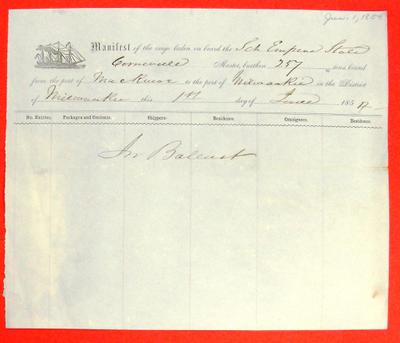 June 1, 1854
Manifest of the cargo laden on board the Sch Empire State
Master, burthen 257 tons, bound
from the port of Mackinac to the port of Milwaukie in the District
of Milwaukie this 1st day of June 185
No. Entries. Packages and Contents. Shippers. Residence. Consignees. Residence.
In Ballast